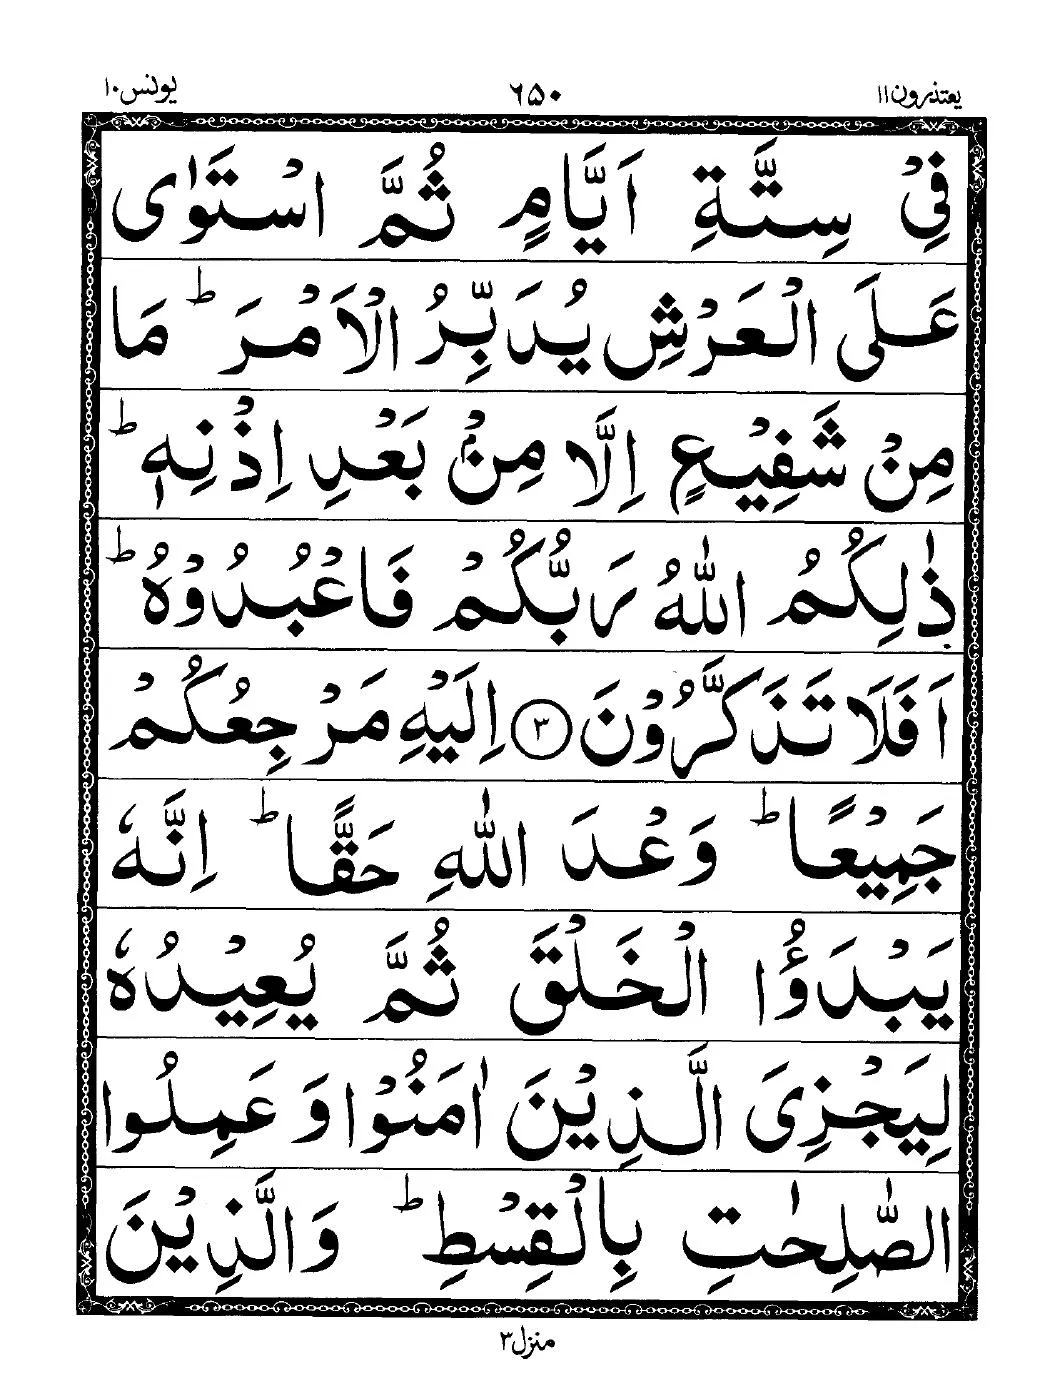 یعتذرون۱۱ ۶۵۰ یونس۱۰
فِىْ سِتَّةِ اَيَّامٍ ثُمَّ اسْتَوٰى
عَلَى الْعَرْشِ يُدَبِّرُ الْاَمْرَ ؕ مَا
مِنْ شَفِيْعٍ اِلَّا مِنْۢ بَعْدِ اِذْنِهٖ ؕ
ذٰلِكُمُ اللّٰهُ رَبُّكُمْ فَاعْبُدُوْهُ ؕ
اَفَلَا تَذَكَّرُوْنَ ۳ اِلَيْهِ مَرْجِعُكُمْ
جَمِيْعًا ؕ وَعْدَ اللّٰهِ حَقًّا ؕ اِنَّهٗ
يَبْدَؤُا الْخَلْقَ ثُمَّ يُعِيْدُهٗ
لِيَجْزِىَ الَّذِيْنَ اٰمَنُوْا وَ عَمِلُوا
الصّٰلِحٰتِ بِالْقِسْطِ ؕ وَالَّذِيْنَ
منزل۳